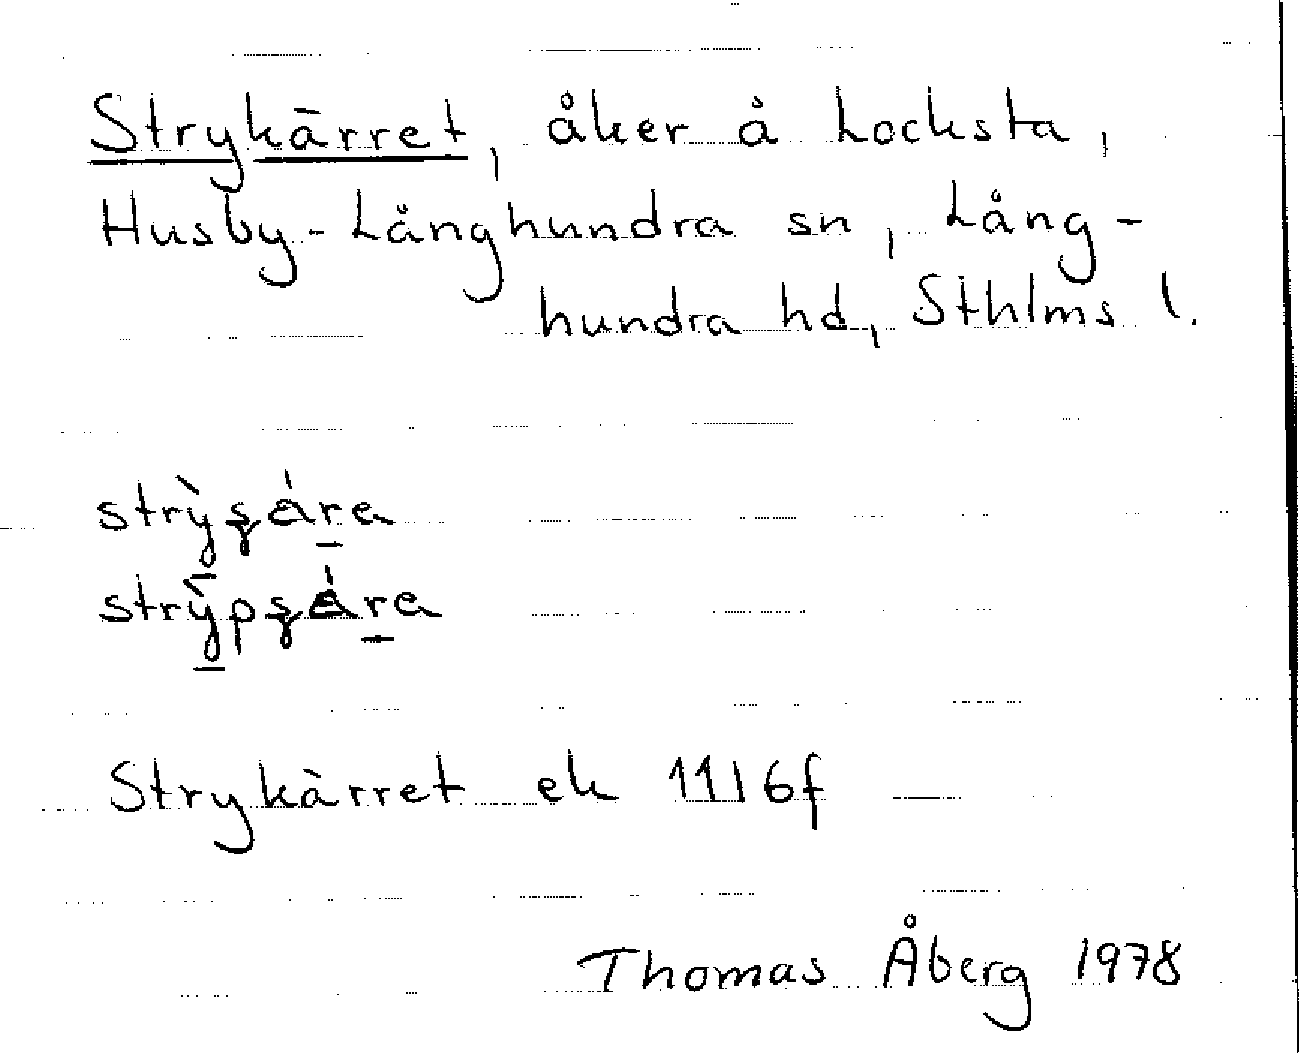 Strykärret, åker å Locksta,
Husby-Långhundra sn, Lång-
hundra hd, Sthlms l.
Strykärret ek 11I6f
Thomas Åberg 1978